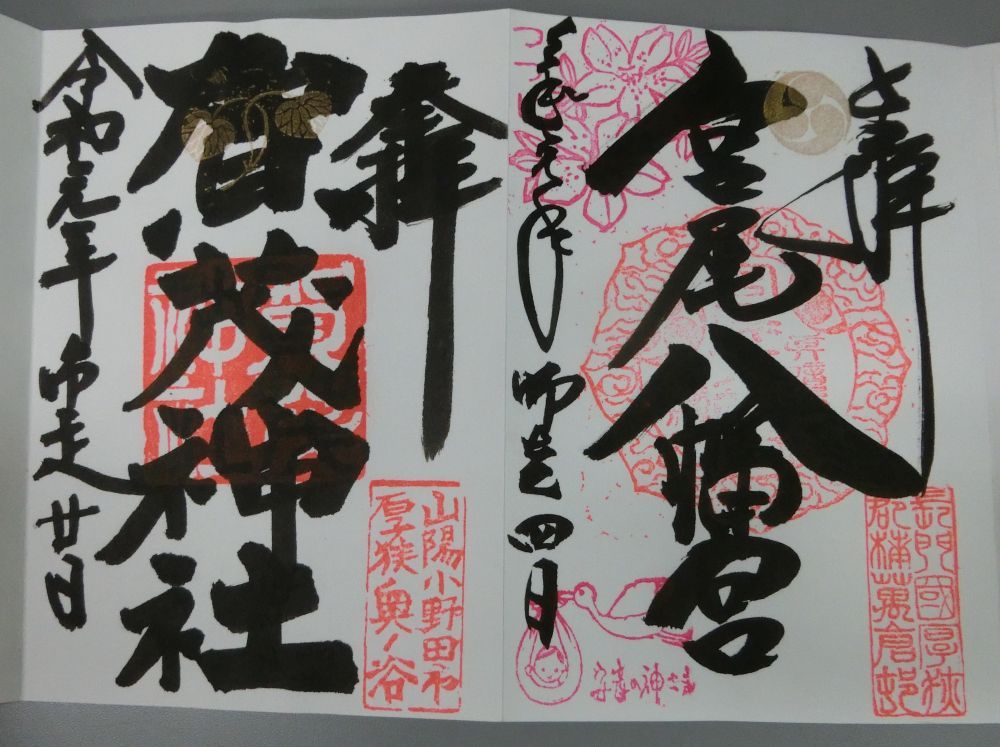 奉拝
宮尾八幡宮
令和元年師走四日
長門國厚狭
郡楠萬倉邨
子寿の神さま
奉拝
賀茂神社
山陽小野田市
厚狭奥ノ谷
令和元年師走廿日